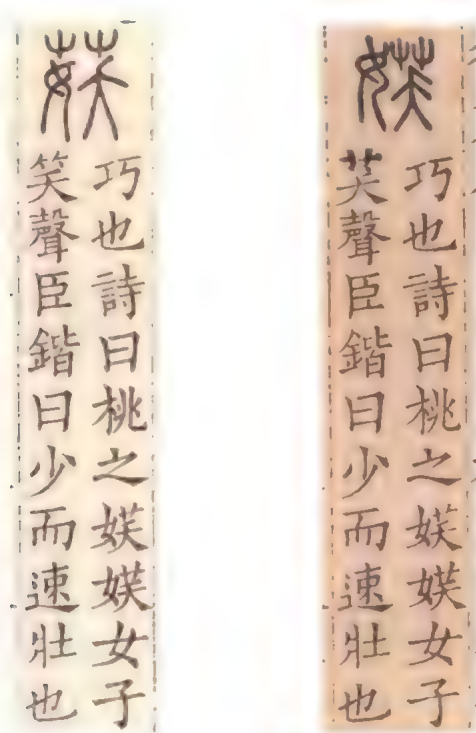 𡝩
巧也詩曰桃之𡝩𡝩女子
芺聲臣鍇曰少而速壯也
巧也詩曰桃之𡝩𡝩女子
笑聲臣鍇曰少而速壯也